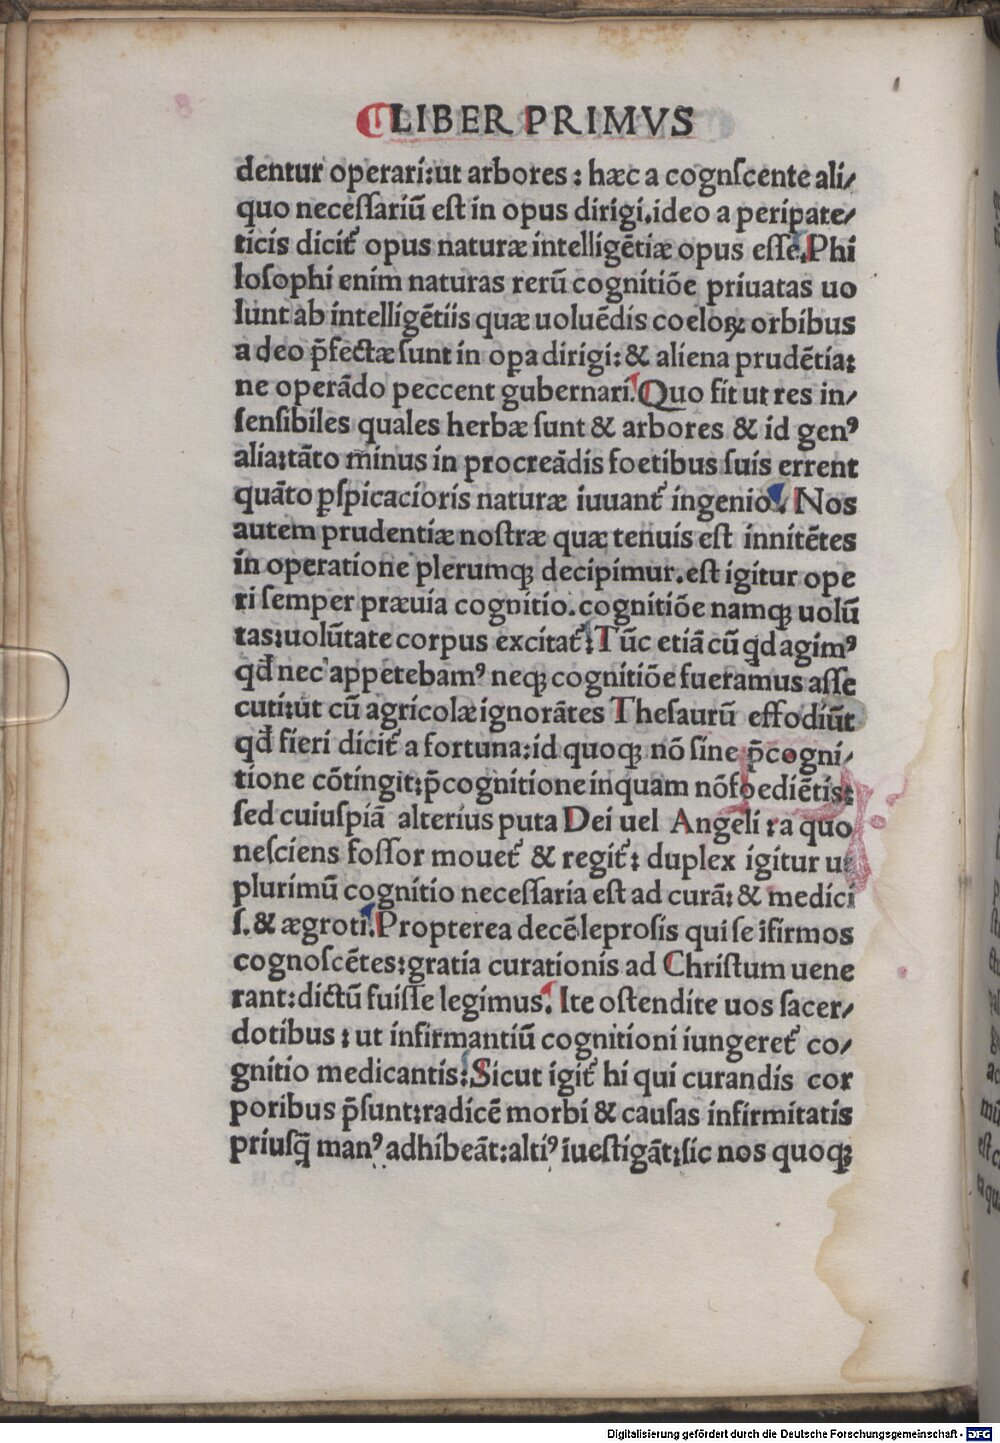 LIBER PRIMVS
dentur operari:ut arbores : hæc a cognſcente ali/
quo neceſſariū eſt in opus dirigi.ideo a peripate/
ticis dicit᷑ opus naturæ intelligētiæ opus eſſe.Phi
loſophi enim naturas rerū cognitiōe priuatas uo
lunt ab intelligētiis quæ uoluēdis coeloꝝ orbibus
a deo p̄fectæ ſunt in opa dirigi: & aliena prudētia:
ne operādo peccent gubernari.Quo fit ut res in/
ſenſibiles quales herbæ ſunt & arbores & id genꝰ
alia:tāto minus in procreādis foetibus ſuis errent
quāto ꝑſpicacioris naturæ iuuant᷑ ingenio. Nos
autem prudentiæ noſtræ quæ tenuis eſt innitētes
in operatione plerumqꝫ decipimur.eſt igitur ope
ri ſemper præuia cognitio.cognitiōe namqꝫ uolū
tas:uolūtate corpus excitat᷑:Tūc etiā cū qd agimꝰ
qđ nec appetebamꝰ neqꝫ cognitiōe fueramus aſſe
cuti:ut cū agricolæ ignorātes Theſaurū effodiūt
qđ fieri dicit᷑ a fortuna:id quoqꝫ nō ſine p̄cogni/
tione cōtingit:p̄cognitione inquam nō foediētis:
ſed cuiuſpiā alterius puta Dei uel Angeli : a quo
neſciens foſſor mouet᷑ & regit᷑: duplex igitur ut
plurimū cognitio neceſſaria eſt ad curā: & medici
ſ.& ægroti.Propterea decē leproſis qui ſe īfirmos
cognoſcētes:gratia curationis ad Chriſtum uene
rant:dictū fuiſſe legimus. Ite oſtendite uos ſacer/
dotibus : ut infirmantiū cognitioni iungeret᷑ co/
gnitio medicantis:Sicut igit᷑ hi qui curandis cor
poribus p̄ſunt:radicē morbi & cauſas infirmitatis
priuſq̄ manꝰ adhibeāt:altiꝰ īueſtigāt:ſic nos quoqꝫ
Digitalisierung gefördert durch die Deutsche Forschungsgemeinschaft - DFG